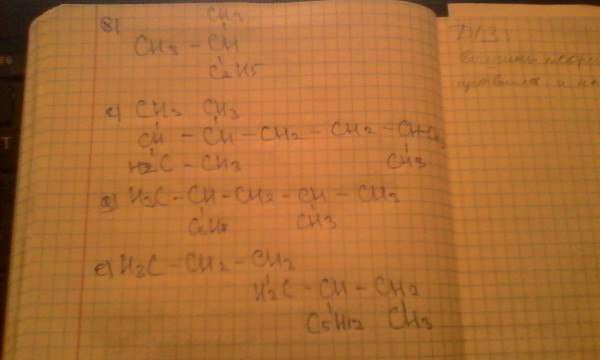 в)
CH3
CH3 – CH
C2H5
г) CH3 CH3
CH – CH – CH2 – CH2 – CH–CH3
H2C – CH3 CH3
д) H3C – CH – CH2 – CH – CH3
C2H5 CH3
е) H3C – CH2 – CH2
H2C – CH – CH2
C5H12 CH3
Д/З: